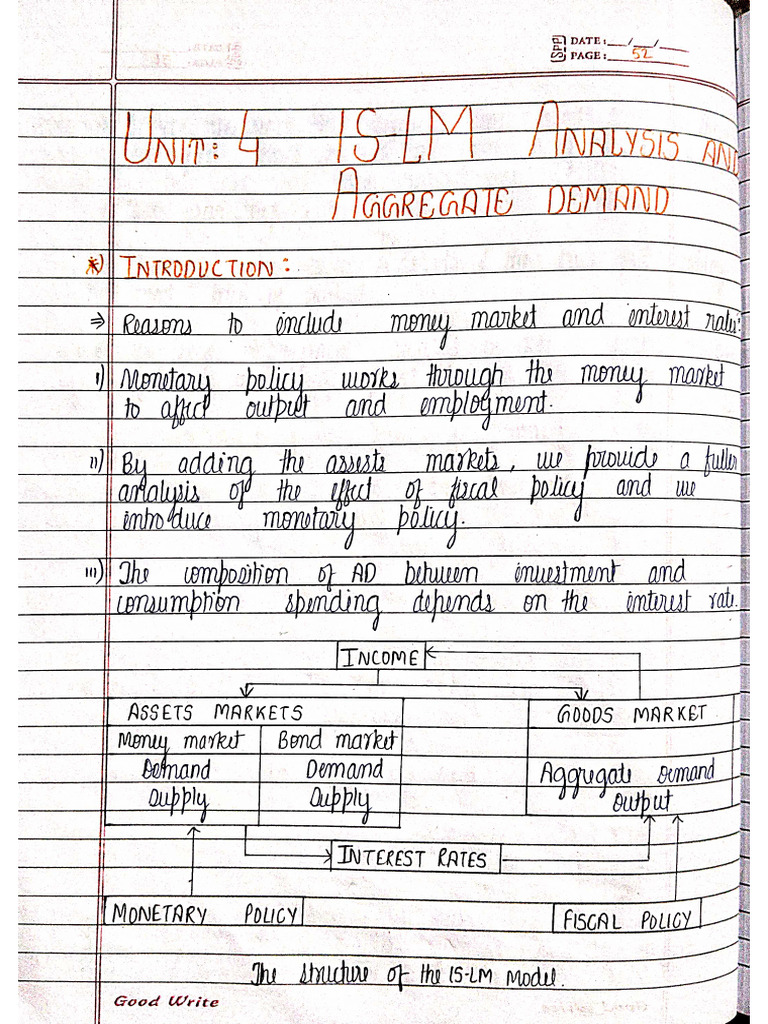 SPP DATE: __/__/____
PAGE: 52
UNIT: 4 IS-LM ANALYSIS AND
AGGREGATE DEMAND
*) INTRODUCTION:
⇒ Reasons to include money market and interest rates:
i) Monetary policy works through the money market
to affect output and employment.
ii) By adding the assests markets, we provide a fuller
analysis of the effect of fiscal policy and we
introduce monetary policy.
iii) The composition of AD between investment and
consumption spending depends on the interest rate.
INCOME
ASSETS MARKETS
Money market Bond market
Demand Demand
Supply Supply
GOODS MARKET
Aggregate demand
output
INTEREST RATES
MONETARY POLICY
FISCAL POLICY
The structure of the IS-LM Model.
Good Write